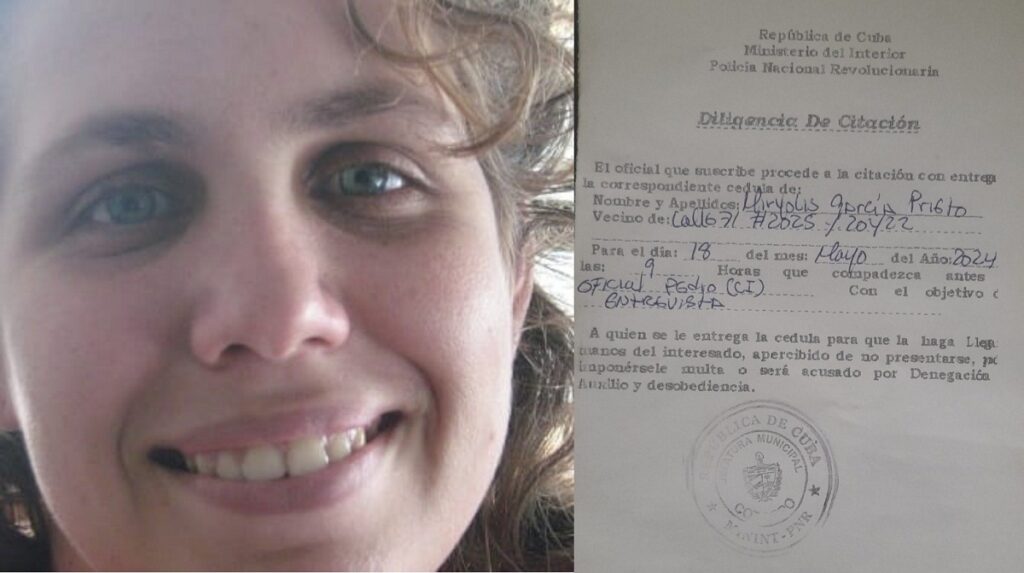 República de Cuba
Ministerio del Interior
Policia Nacional Revolucionaria
Diligencia De Citación
El oficial que suscribe procede a la citación con entrega
la correspondiente cedula de:
Nombre y Apellidos: García Prieto
Vecino de: Calle 71 #2025 / 20 y 22
Para el dia: 18 del mes: Mayo del Año: 2024
las: 9 Horas que compadezca antes
OFICIAL Pedro (CI) Con el objetivo d
ENTREVISTA
A quien se le entrega la cedula para que la haga Llega
manos del interesado, apercibido de no presentarse, po
imponérsele multa o será acusado por Denegación
Auxilio y desobediencia.
REPÚBLICA DE CUBA
JEFATURA MUNICIPAL
MININT-PNR